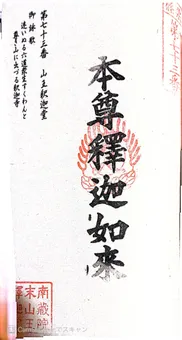 第七十三番　山王釈迦堂
御詠歌
迷いぬる六道衆生すくわんと
尊き山に出づる釈迦寺
本尊釋迦如來
南藏院
末山王
CamScannerでスキャン